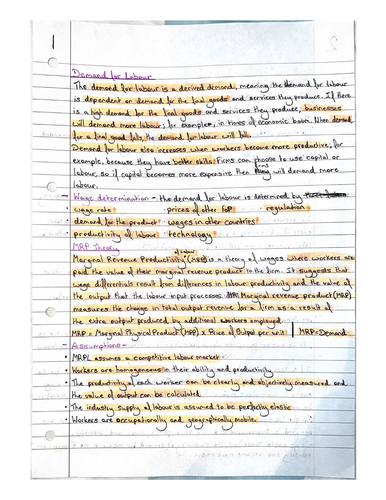 1
Demand for Labour
The demand for labour is a derived demand, meaning the demand for labour
is dependent on demand for the final goods and services they produce. If there
is a high demand for the final goods and services they produce, businesses
will demand more labour; for example, in times of economic boom. When demand
for a final good falls, the demand for labour will fall.
Demand for labour also increases when workers become more productive; for
example, because they have better skills. Firms can choose to use capital or
labour, so if capital becomes more expensive then firms will demand more
labour.
- Wage determination - the demand for labour is determined by
• wage rate • prices of other FoP • regulation
• demand for the product • wages in other countries
• productivity of labour • technology
MRP Theory
Marginal Revenue Productivity of labour (MRP) is a theory of wages where workers are
paid the value of their marginal revenue product to the firm. It suggests that
wage differentials result from differences in labour productivity and the value of
the output that the labour input processes. Marginal revenue product (MRP)
measures the change in total output revenue for a firm as a result of
the extra output produced by additional workers employed.
MRP = Marginal Physical Product (MPP) x Price of Output per unit | MRP = Demand
- Assumptions -
• MRPL assumes a competitive labour market
• Workers are homogeneous in their ability and productivity
• The productivity of each worker can be clearly and objectively measured and
the value of output can be calculated
• The industry supply of labour is assumed to be perfectly elastic
• Workers are occupationally and geographically mobile.